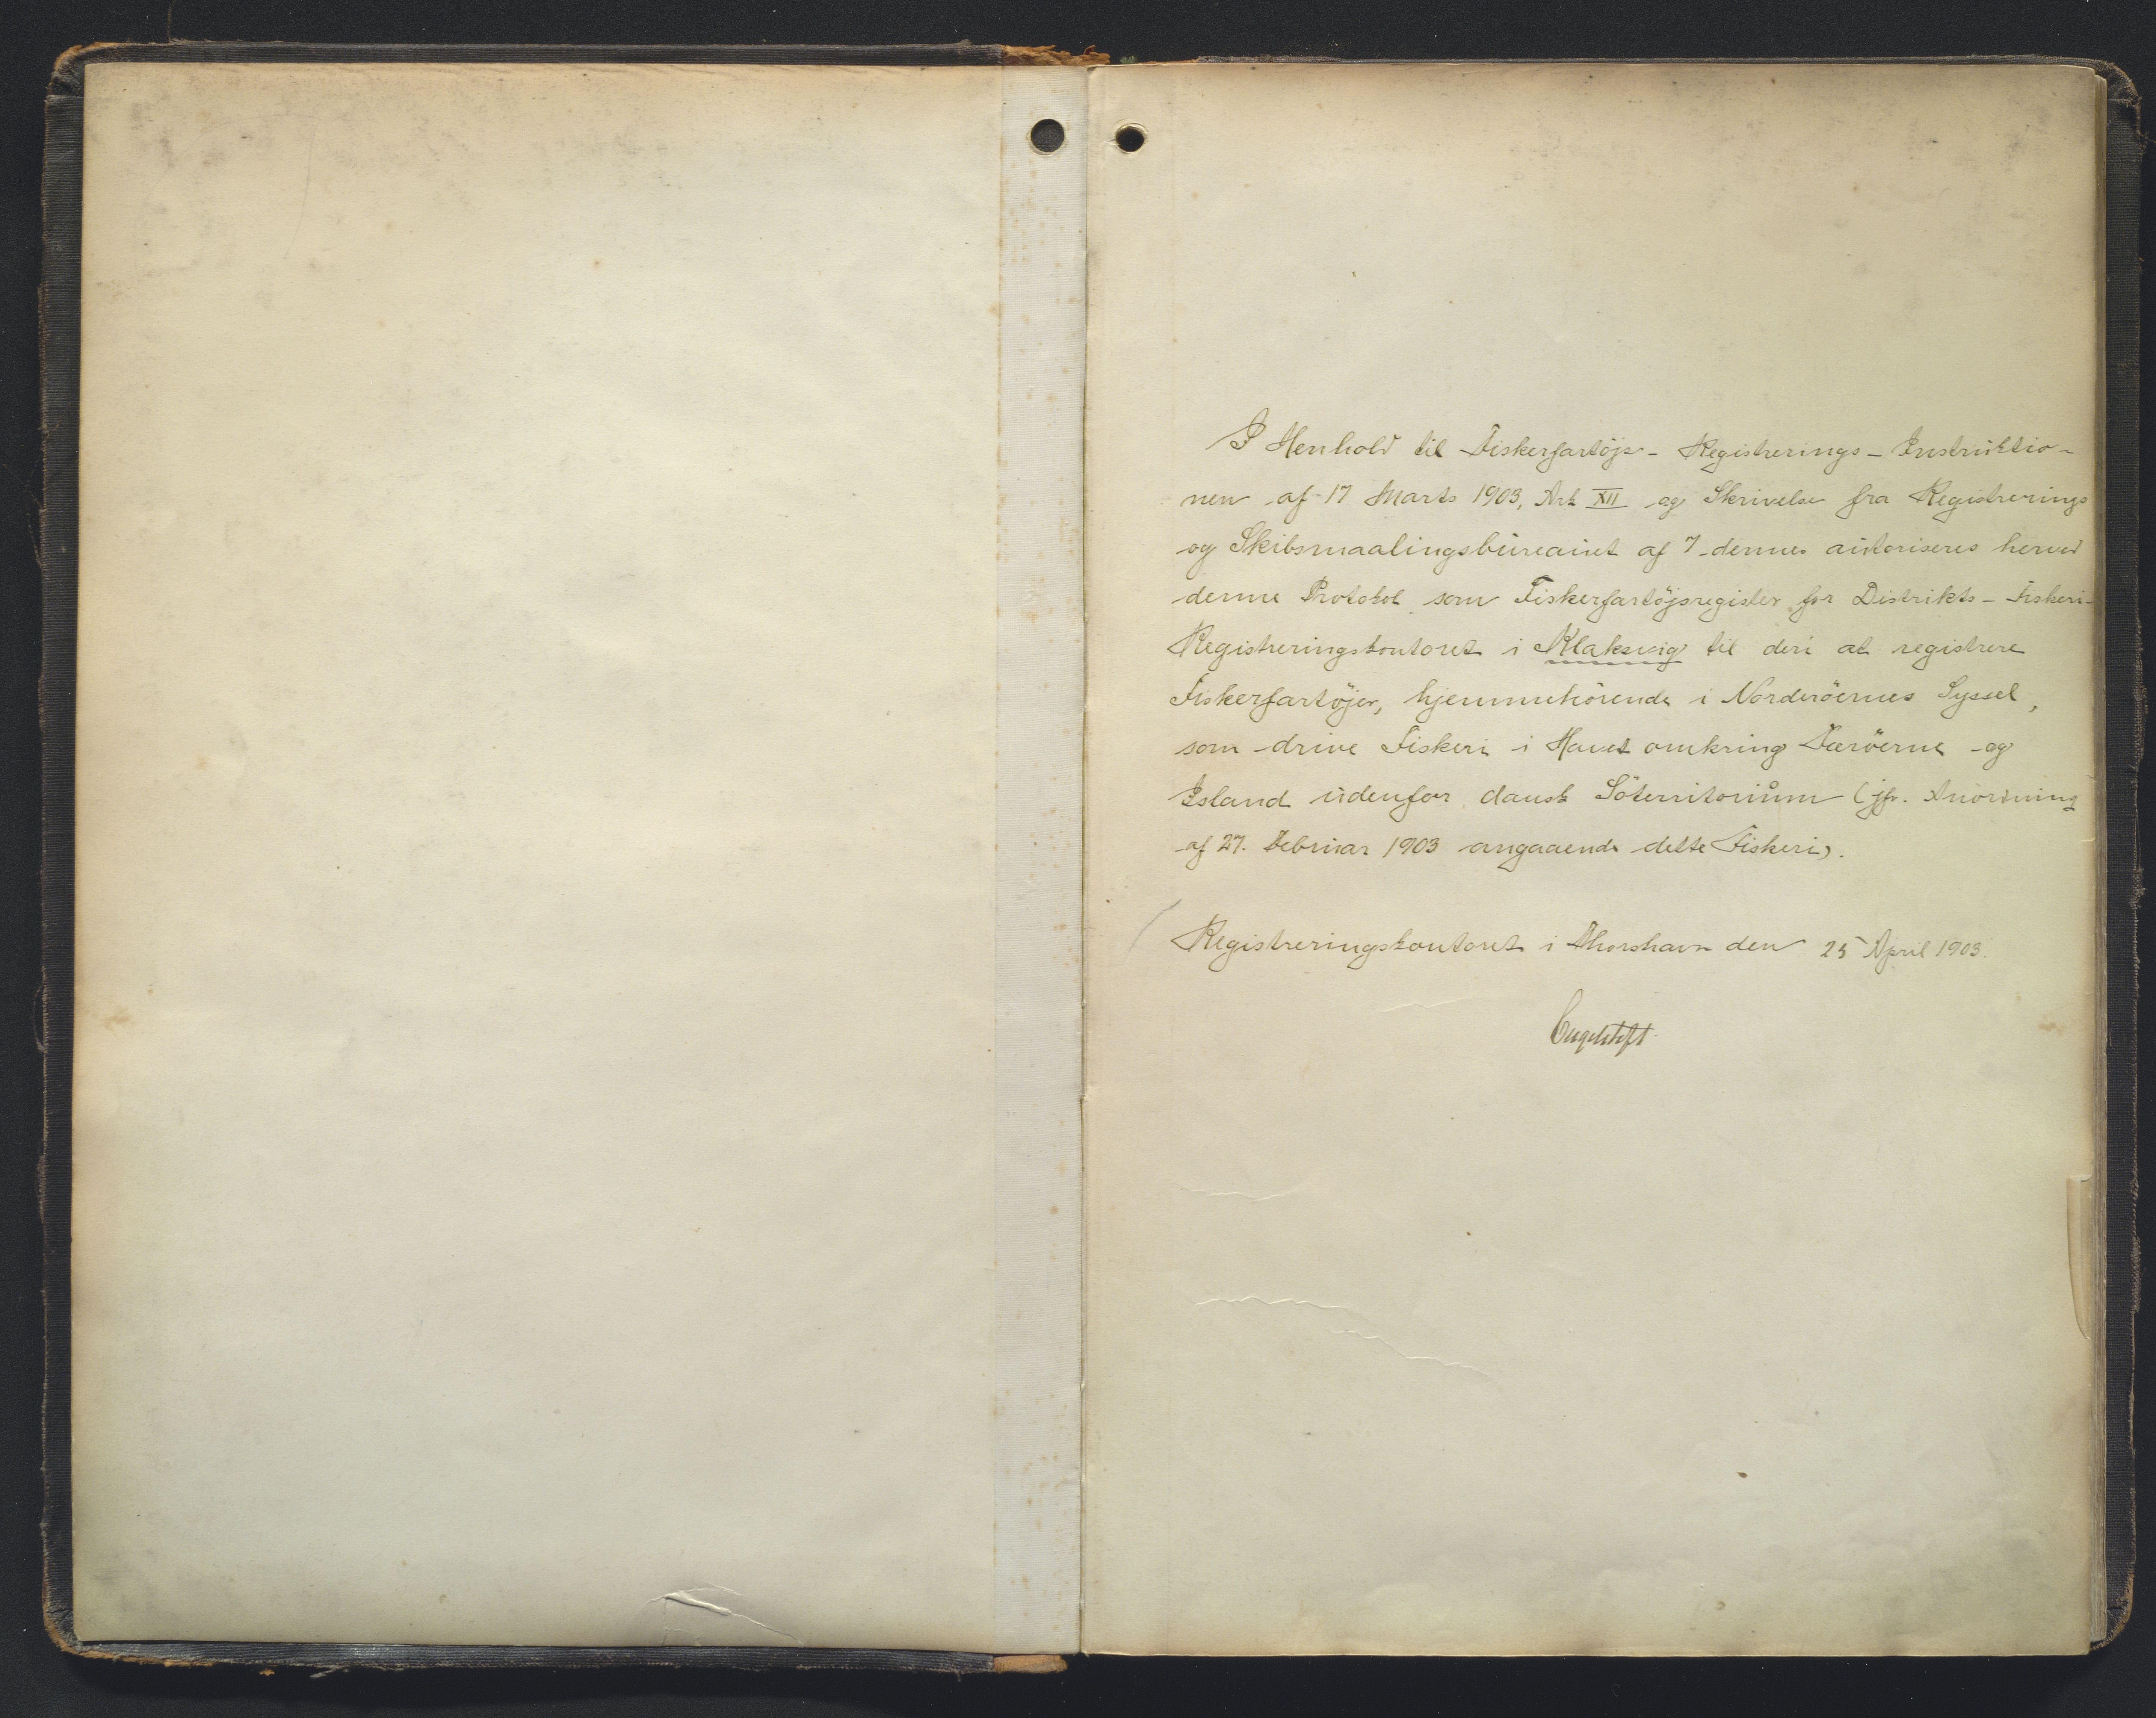 I Henhold til Fiskerfartöjs-Registrerings-Instruktio-
nen af 17 Marts 1903, Art XII og Skrivelse fra Registrerings
og Skibsmaalingsbureauet af 7 dennes autoriseres herved
denne Protokol som Fiskerfartöjsregister for Distrikts-Fiskeri-
Registreringskontoret i Klaksvig til deri at registrere
Fiskerfartöjer, hjemmehörende i Norderöernes Syssel,
som drive Fiskeri i Havet omkring Færöerne og
Island udenfor dansk Söterritorium (jfr. Anordning
af 27. Februar 1903 angaaende dette Fiskeri).
Registreringskontoret i Thorshavn den 25 April 1903.
Engelstoft